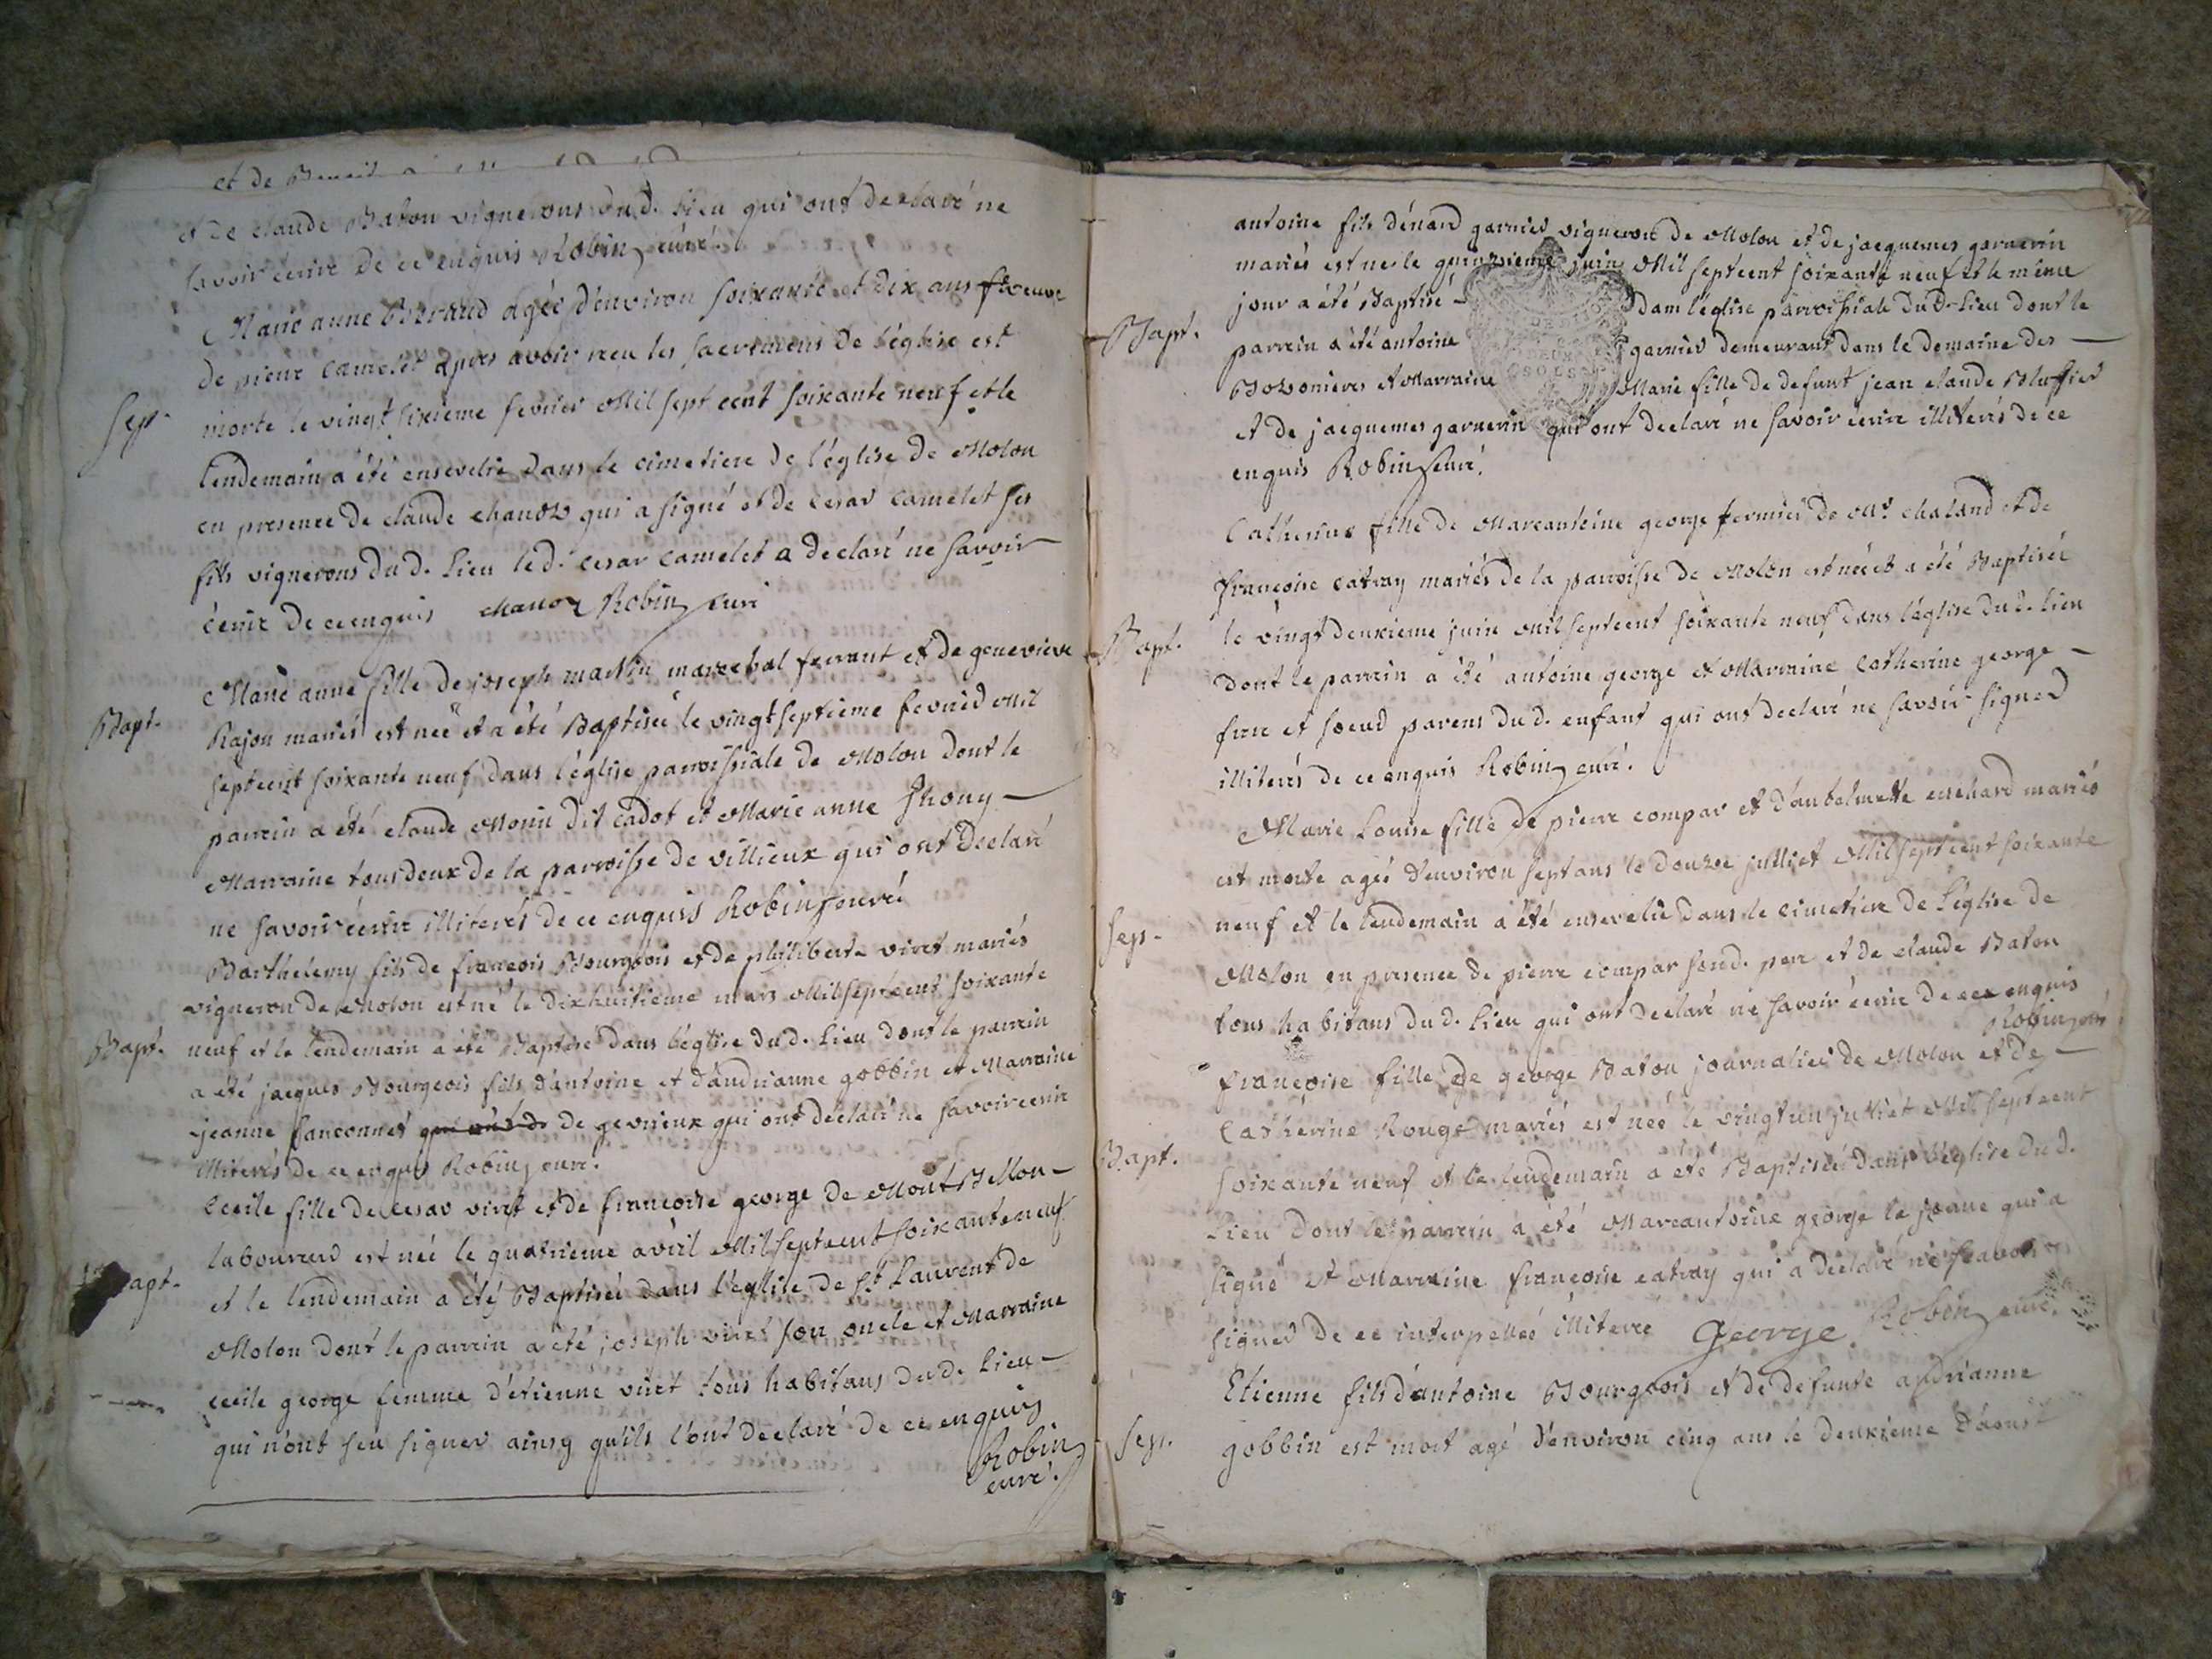 et de
et de claude Baton vignerons dud. Lieu qui ont declaré ne
savoir écrire de ce enquis Robin curé
Marie anne agée d'environ soixante et dix ans veuve
de pierre camelet apres avoir reçu les sacremens de l'église est
Sep. morte le vingt sixieme fevrier Mil sept cent soixante neuf et le
lendemain a été ensevelie dans le cimetiere de l'église de Molon
en presence de claude chanoz qui a signé et de cesar camelet ses
fils vignerons du d. Lieu le d. cesar camelet a declaré ne savoir
écrire de ce enquis chanoz Robin curé
Marie anne fille de joseph martin marechal ferrant et de genevieve
Bapt. Rajon mariés est née et a été Baptisée le vingt septieme fevrier Mil
septcent soixante neuf dans l'église parroissiale de Molon dont le
parrein a été claude Monin dit cadot et Marie anne
Marraine tous deux de la parroisse de villieux qui ont declaré
ne savoir écrire illiterés de ce enquis Robin curé
Barthelemy fils de francois Bourgeois et de philiberte viret mariés
vigneron de Molon est né le dixhuitieme mars Mil septcent soixante
Bapt. neuf et le lendemain a été Baptisé dans l'église du d. Lieu dont le parrein
a été jacques Bourgeois fils d'antoine et d'andrianne gobbin et Marraine
jeanne janconnet qui ont de de gevrieux qui ont declaré ne savoir ecrire
illiterés de ce enquis Robin curé.
Cecile fille de cesar viret et de francoise george de Mont Bellon
laboureur est née le quatrieme avril Mil septcent soixante neuf
Bapt. et le lendemain a été Baptisée dans l'église de St Laurent de
Molon dont le parrein a été joseph viret son oncle et Marraine
cecile george femme d'etienne viret tous habitans du d. Lieu
qui n'ont seu signer ainsy qu'ils l'ont declaré de ce enquis
Robin
curé.
antoine fils d'énard garnier vigneron de Molon et de jacquemes garnerin
mariés est né le quinzieme juin Mil septcent soixante neuf et le même
jour a été Baptisé dans l'église parroissiale du d. Lieu dont le
Bapt. parrein a été antoine garnier demeurant dans le domaine des
Bozonieres et Marraine Marie fille de defunt jean claude Bluffier
et de jacquemes garnerin qui ont declaré ne savoir ecrire illiterés de ce
enquis Robin curé.
Catherine fille de Marcantoine george fermier de Mr. chaland et de
françoise catray mariés de la parroisse de Molon est née et a été Baptisée
Bapt. le vingt deuxieme juin mil septcent soixante neuf dans l'église du d. lieu
dont le parrein a été antoine george et Marraine catherine george
frere et soeur parens du d. enfant qui ont declaré ne savoir signer
illiterés de ce enquis Robin curé.
Marie Louise fille de pierre compar et d'anthelmette mariés
est morte agée d'environ sept ans le douze julliet Mil septcent soixante
Sep. neuf et le lendemain a été ensevelie dans le cimetiere de l'église de
Molon en presence de pierre compar son d. pere et de claude Baton
tous habitans du d. lieu qui ont declaré ne savoir ecrire de ce enquis
Robin curé
françoise fille de george Baton journalier de Molon et de
catherine Rouge mariés est née le vingt un julliet Mil septcent
Bapt. soixante neuf et le lendemain a été Baptisée dans l'église du d.
Lieu dont le parrein a été Marcantoine george le jeune qui a
signé et Marraine françoise catray qui a declaré ne savoir
signer de ce interpellée illiterée George Robin curé.
Etienne fils d'antoine Bourgeois et de defunte andrianne
Sep. gobbin est mort agé d'environ cinq ans le deuxieme d'aoust